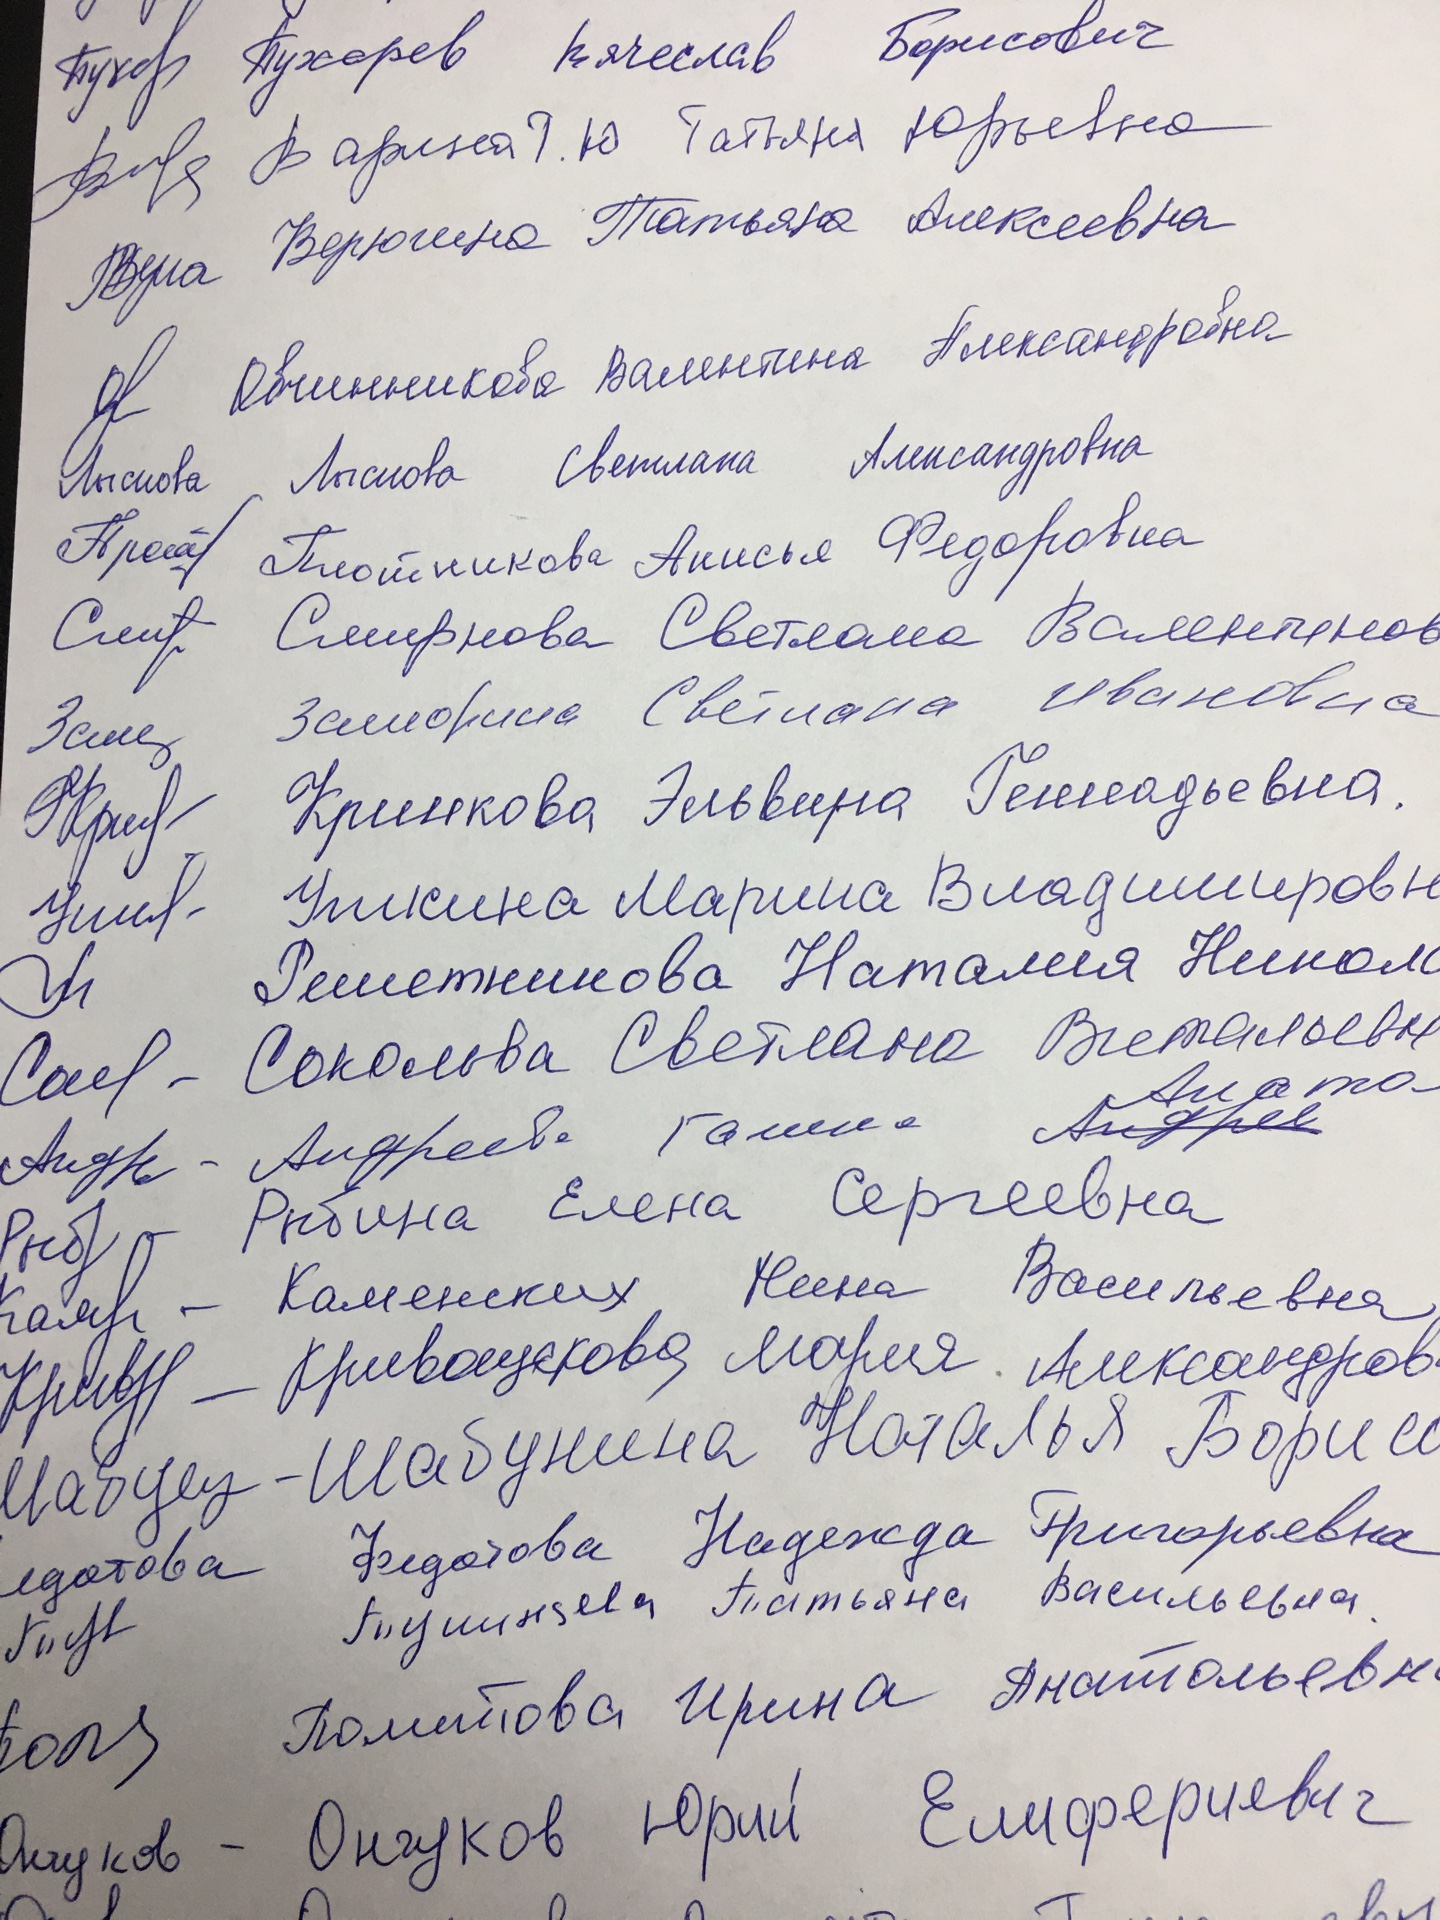 Пухарев Вячеслав Борисович
Варина Т.Ю Татьяна Юрьевна
Верюгина Татьяна Алексеевна
Овчинникова Валентина Александровна
Лыскова Лыскова Светлана Александровна
Плотникова Анисья Федоровна
Смир Смирнова Светлана Валентинов
Светлана Ивановна
Кринкова Эльвира Геннадьевна.
Упкина Марина Владимировн
Решетникова Наталия Никола
Соколова Светлана Витальевн
Анато
Андр - Андреева Галина Андрее
Рябина Елена Сергеевна
Каменских Нина Васильевна
Мария Александров
- Шабунина Наталья Борисо
едотова Федотова Надежда Григорьевна
Татьяна Васильевна.
Ирина Анатольевн
Ончуков - Ончуков Юрий Елифериевич